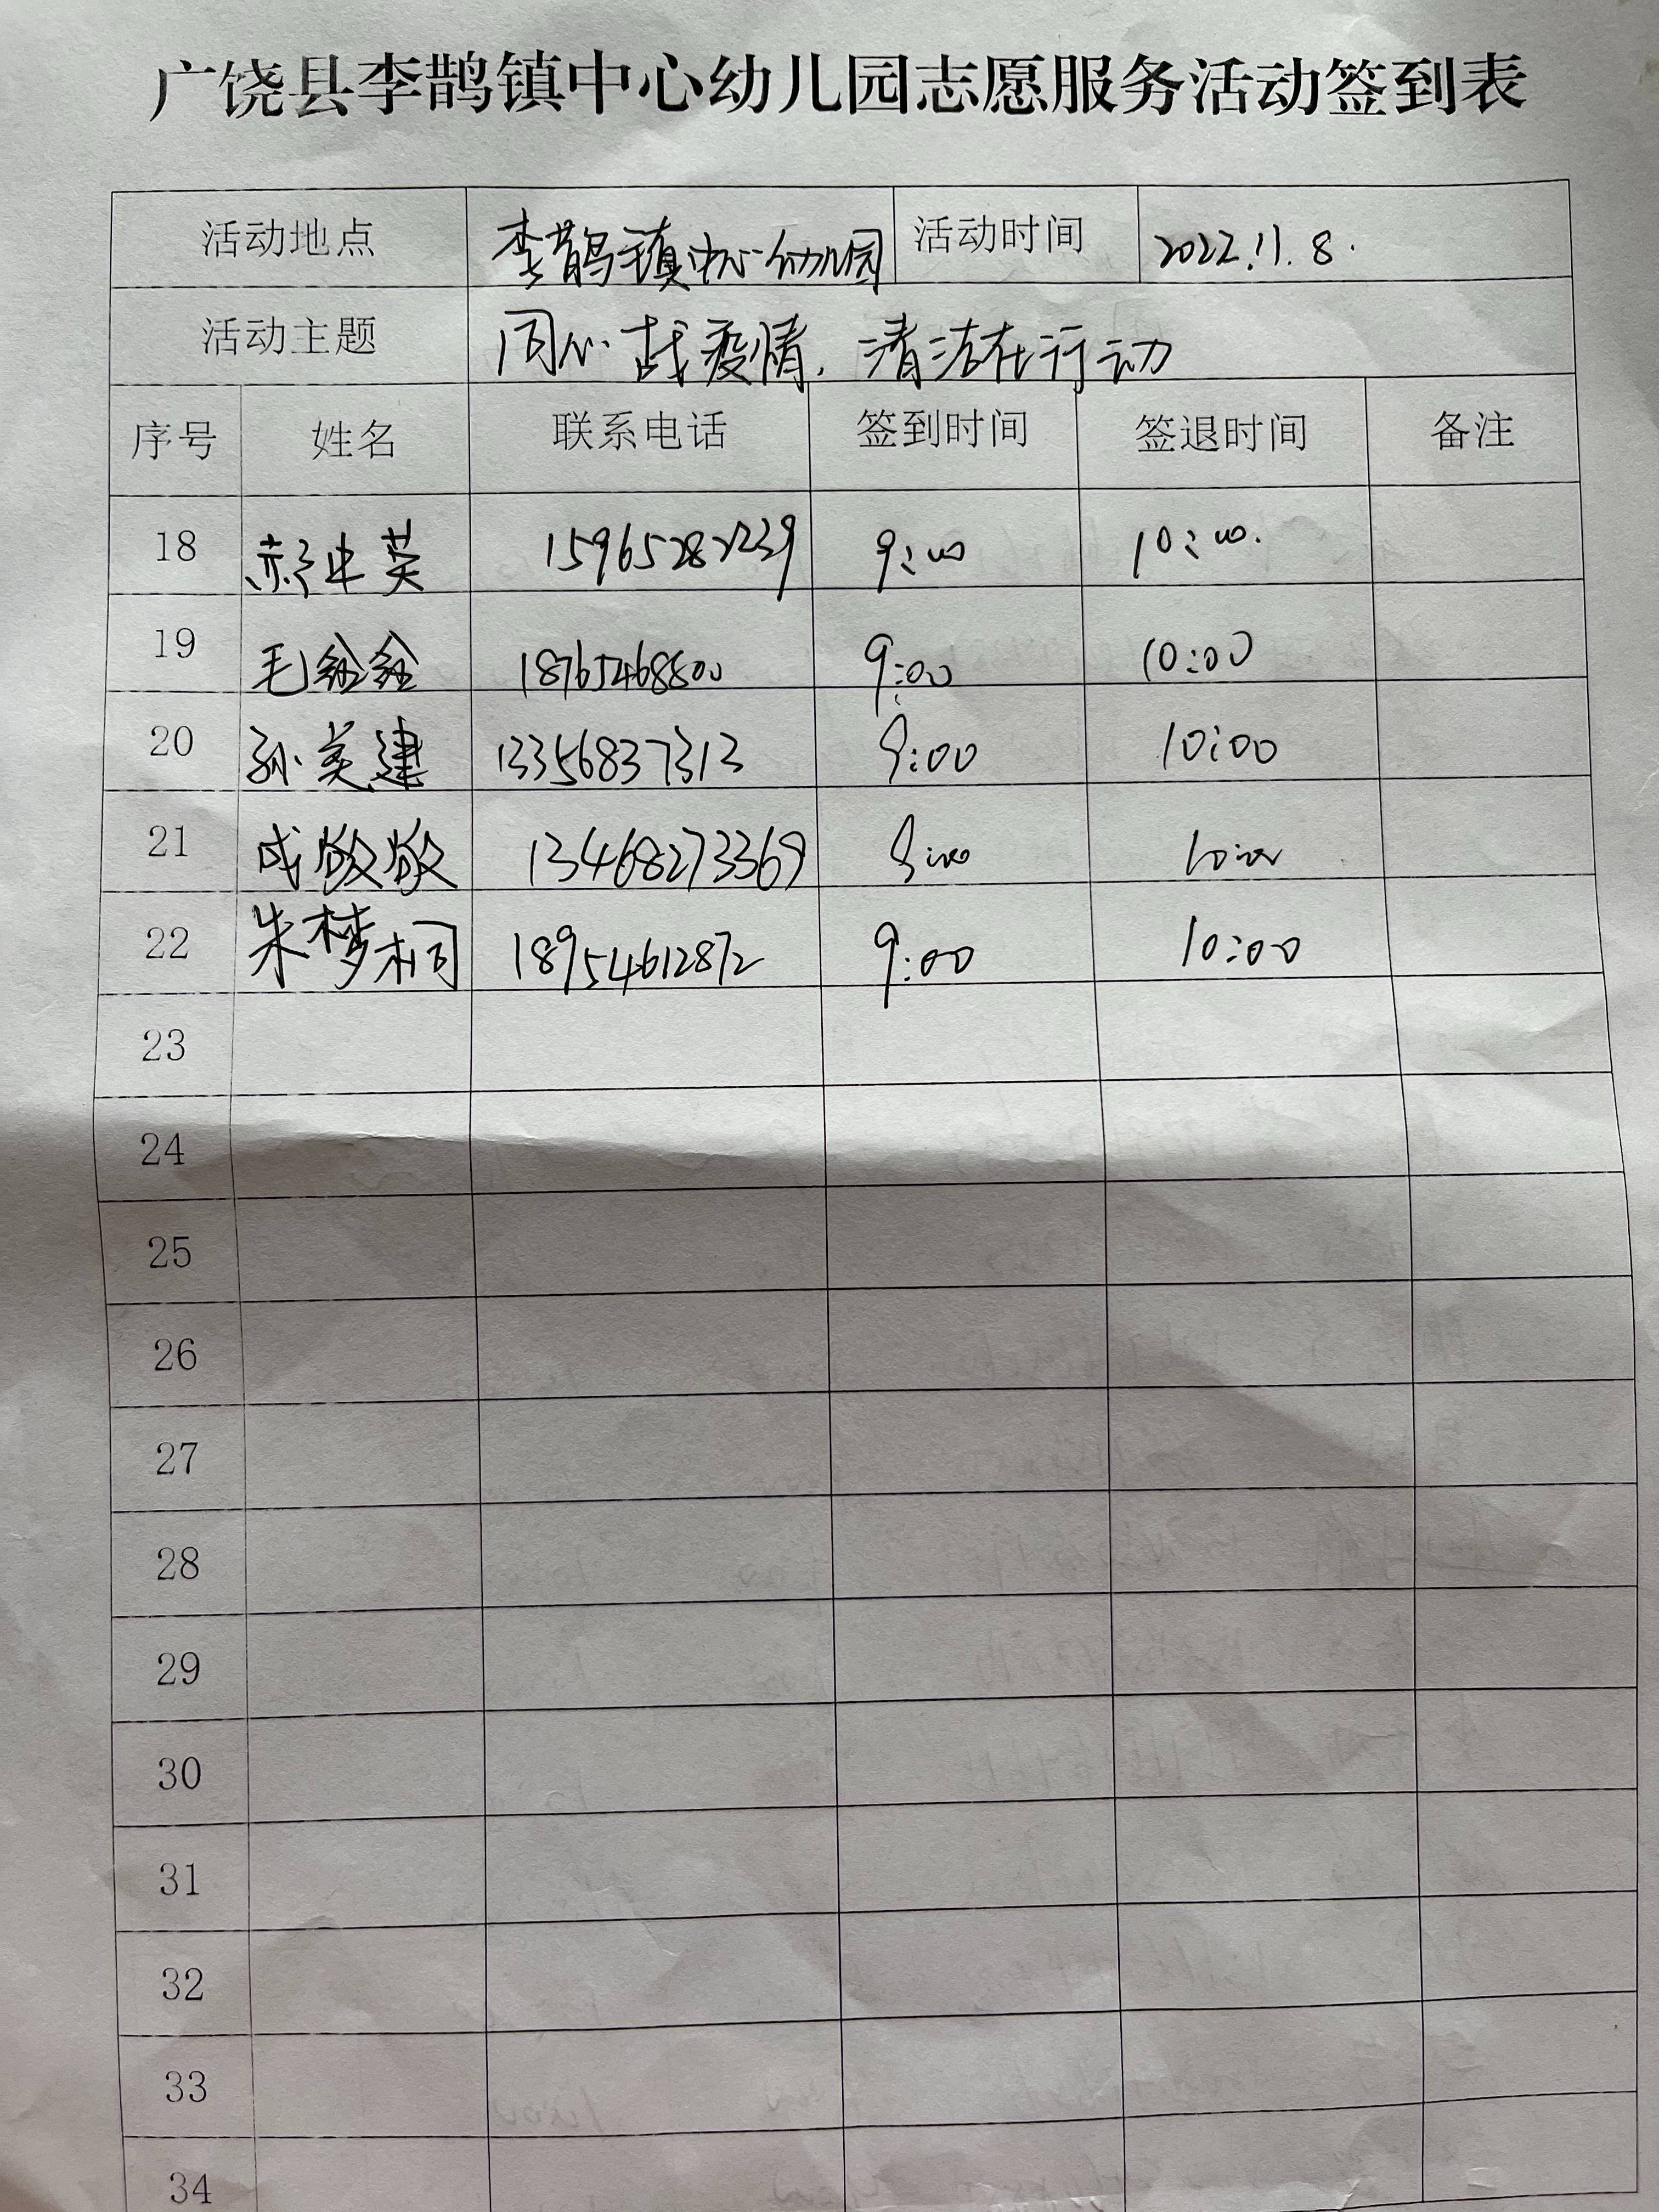 广饶县李鹊镇中心幼儿园志愿服务活动签到表
活动地点 李鹊镇中心幼儿园 活动时间 2022.11.8.
活动主题 同心战疫情，清洁在行动
序号 姓名 联系电话 签到时间 签退时间 备注
18 英 15965282239 9:00 10:00.
19 毛鑫鑫 18765468800 9:00 10:00
20 孙美建 13356837313 9:00 10:00
21 成敏敏 13468273369 9:00 10:00
22 朱梦桐 18954612872 9:00 10:00
23
24
25
26
27
28
29
30
31
32
33
34